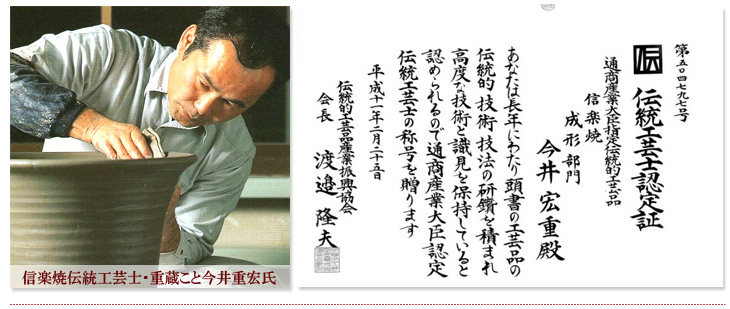 信楽焼伝統工芸士・重蔵こと今井重宏氏
第五〇四七九七号
伝
伝統工芸士認定証
通商産業大臣指定伝統的工芸品
信楽焼
成形部門
今井宏重殿
あなたは長年にわたり頭書の工芸品の
伝統的技術技法の研鑽を積まれ
高度な技術と識見を保持していると
認められるので通商産業大臣認定
伝統工芸士の称号を贈ります
平成十一年二月二十五日
伝統的工芸品産業振興協会
会長 渡邉隆夫